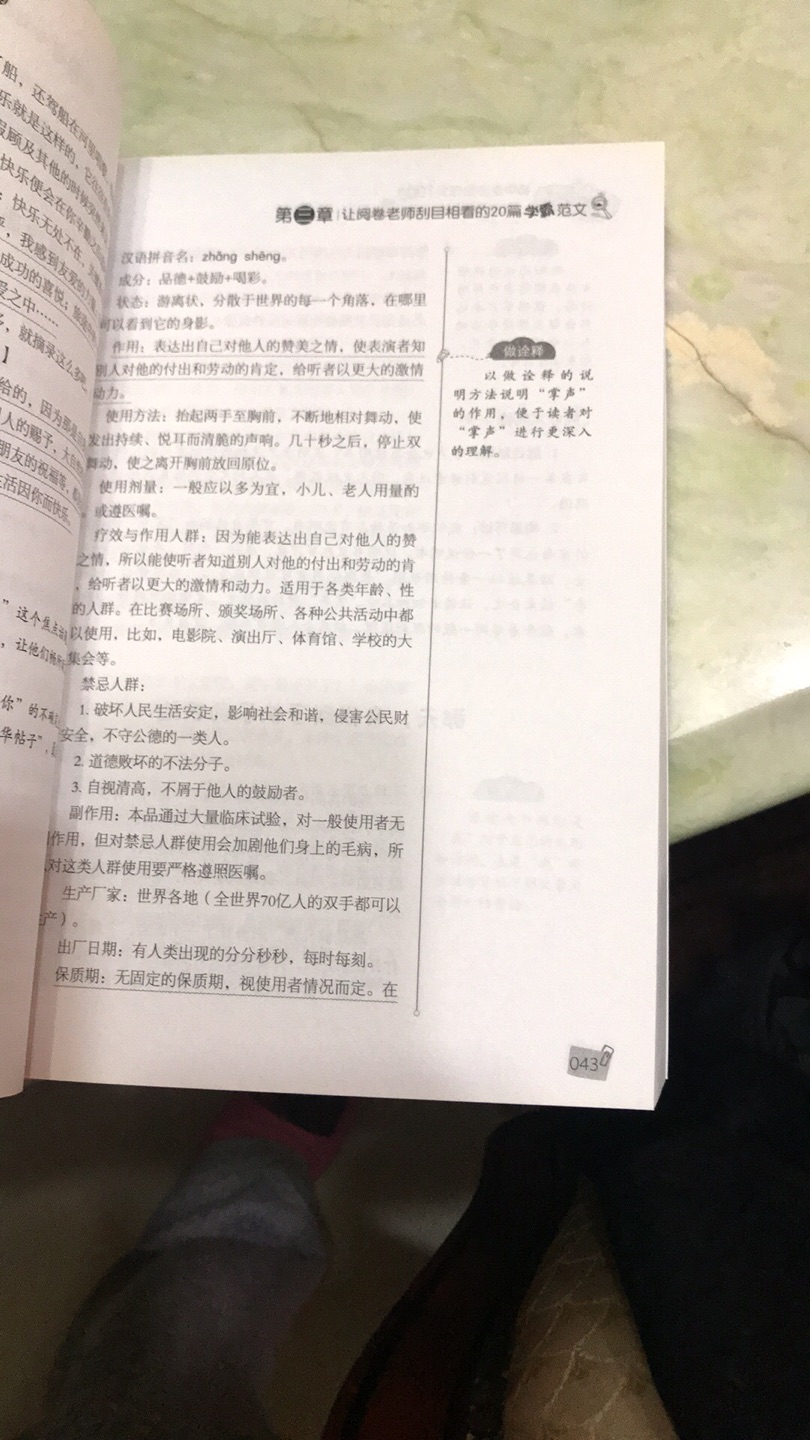 船，还驾船在河里
乐就是这样的，它
顾及其他的时候
快乐便会在你辛勤
：快乐无处不在，
，我感到友爱的
成功的喜悦；
爱之中……
，就摘录这么多
】
给的，因为那是
人的赐予，大
朋友的祝福等，
生活因你而快乐
”这个焦点
，让他们畅所
你”的不
华帖子”，
第三章 让阅卷老师刮目相看的20篇学霸范文
汉语拼音名：zhǎng shēng。
成分：品德+鼓励+喝彩。
状态：游离状，分散于世界的每一个角落，在哪里
可以看到它的身影。
作用：表达出自己对他人的赞美之情，使表演者知
别人对他的付出和劳动的肯定，给听者以更大的激情
动力。
使用方法：抬起两手至胸前，不断地相对舞动，使
发出持续、悦耳而清脆的声响。几十秒之后，停止双
舞动，使之离开胸前放回原位。
使用剂量：一般应以多为宜，小儿、老人用量酌
或遵医嘱。
疗效与作用人群：因为能表达出自己对他人的赞
之情，所以能使听者知道别人对他的付出和劳动的肯
，给听者以更大的激情和动力。适用于各类年龄、性
的人群。在比赛场所、颁奖场所、各种公共活动中都
以使用，比如，电影院、演出厅、体育馆、学校的大
集会等。
禁忌人群：
1. 破坏人民生活安定，影响社会和谐，侵害公民财
安全，不守公德的一类人。
2. 道德败坏的不法分子。
3. 自视清高，不屑于他人的鼓励者。
副作用：本品通过大量临床试验，对一般使用者无
作用，但对禁忌人群使用会加剧他们身上的毛病，所
对这类人群使用要严格遵照医嘱。
生产厂家：世界各地（全世界70亿人的双手都可以
产）。
出厂日期：有人类出现的分分秒秒，每时每刻。
保质期：无固定的保质期，视使用者情况而定。在
做诠释
以做诠释的说
明方法说明“掌声”
的作用，便于读者对
“掌声”进行更深入
的理解。
043